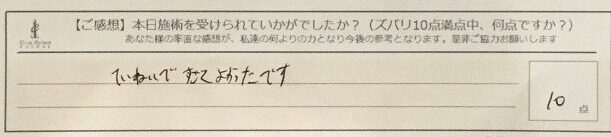 【ご感想】本日施術を受けられていかがでしたか？（ズバリ10点満点中、何点ですか？）
あなた様の率直な感想が、私達の何よりの力となり今後の参考となります。是非ご協力お願いします
ていねいで すごくよかったです
10 点